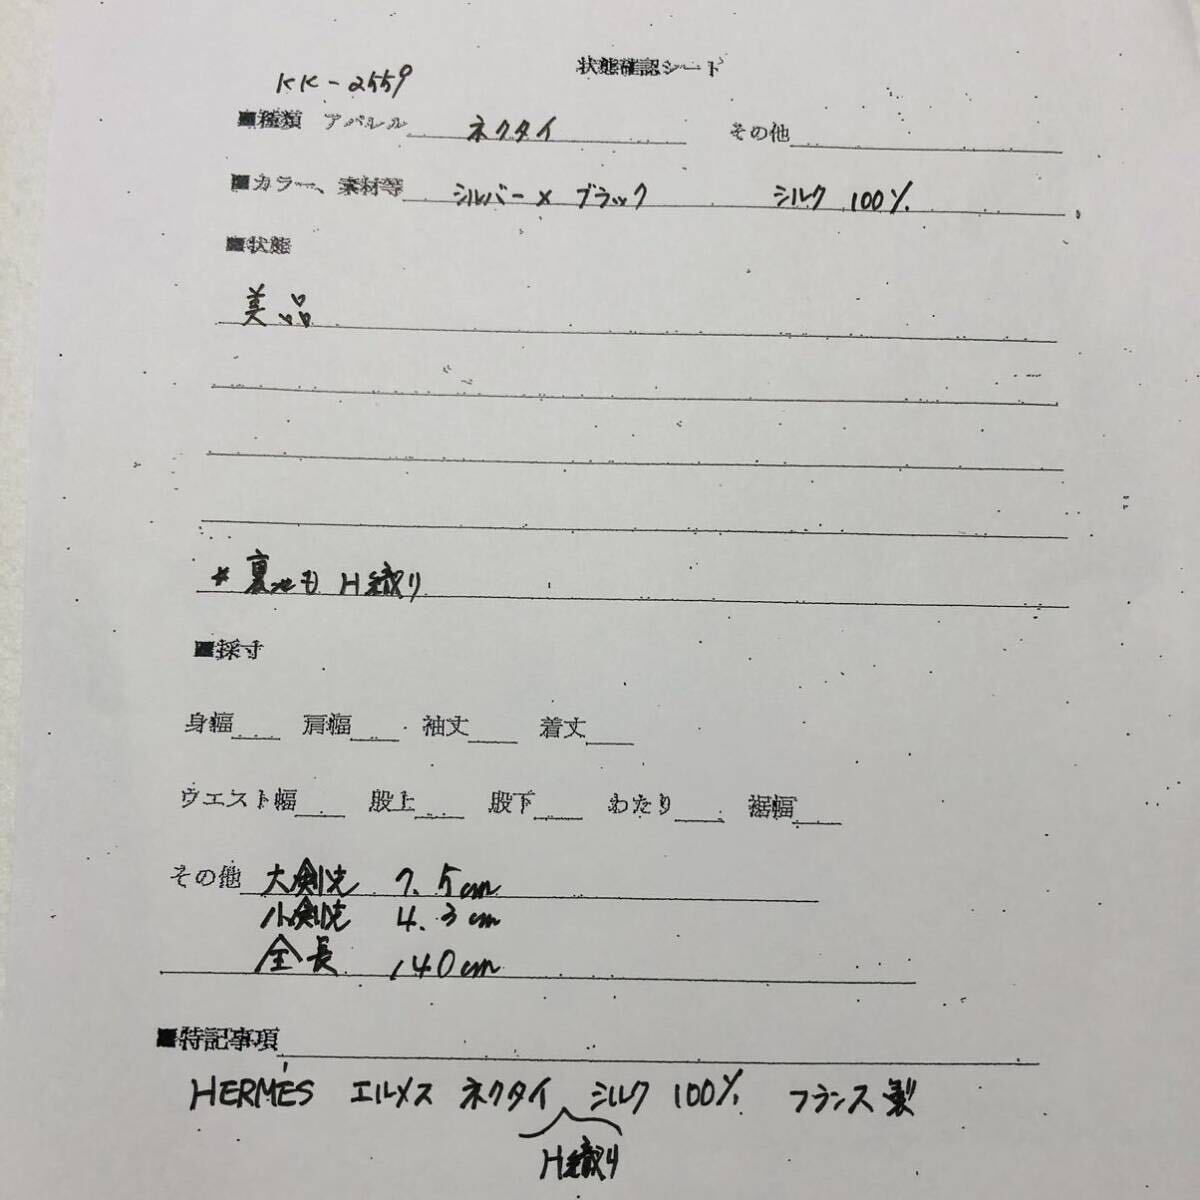 状態確認シート
KK-2559
■種類 アパレル ネクタイ その他
■カラー、素材等 シルバー×ブラック シルク 100%
■状態
美品
*裏地も H織り
■採寸
身幅 肩幅 袖丈 着丈
ウエスト幅 股上 股下 わたり 裾幅
その他 大剣先 7.5cm
小剣先 4.3cm
全長 140cm
■特記事項
HERMÉS エルメス ネクタイ シルク 100% フランス製
H織り